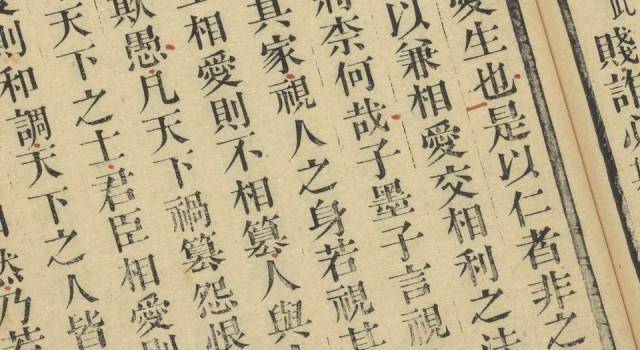 賤詐
愛生也是以仁者非之
以兼相愛交相利之法
將柰何哉子墨子言視
其家視人之身若視其
主相愛則不相篡人與
欺愚凡天下禍篡怨恨
天下之士君臣相愛則
則和調天下之人皆
然乃若